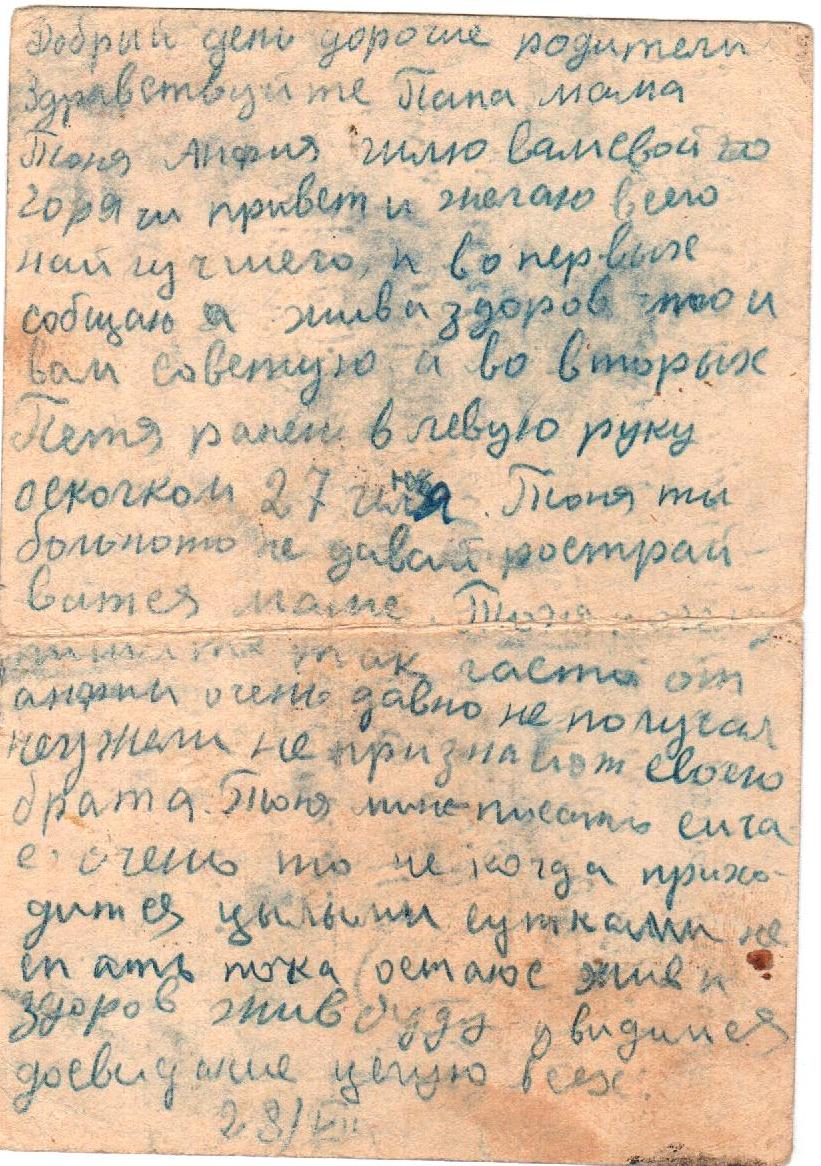 Добрый день дорогие родители
Здравствуйте Папа мама
Тоня Анфия шлю вам свой
горячи привет и желаю всего
найлучшего, и во первых
собщаю я жив а здоров что и
вам советую а во вторых
Петя ранен в левую руку
осколком 27 июля. Тоня ты
больното не давай рострай-
ватся маме. Тоня
пишите так часто от
анфии очень давно не получал
неужели не признаиот своего
брата. Тоня мине писать сича-
с очень то не когда прихо-
дится цылыми сутками не
спать пока остаюс жив и
здоров жив буду увидимся
досвидание целую всех.
28/VII